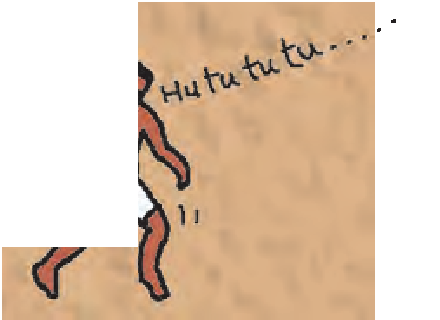 Hu tu tu tu tu.....